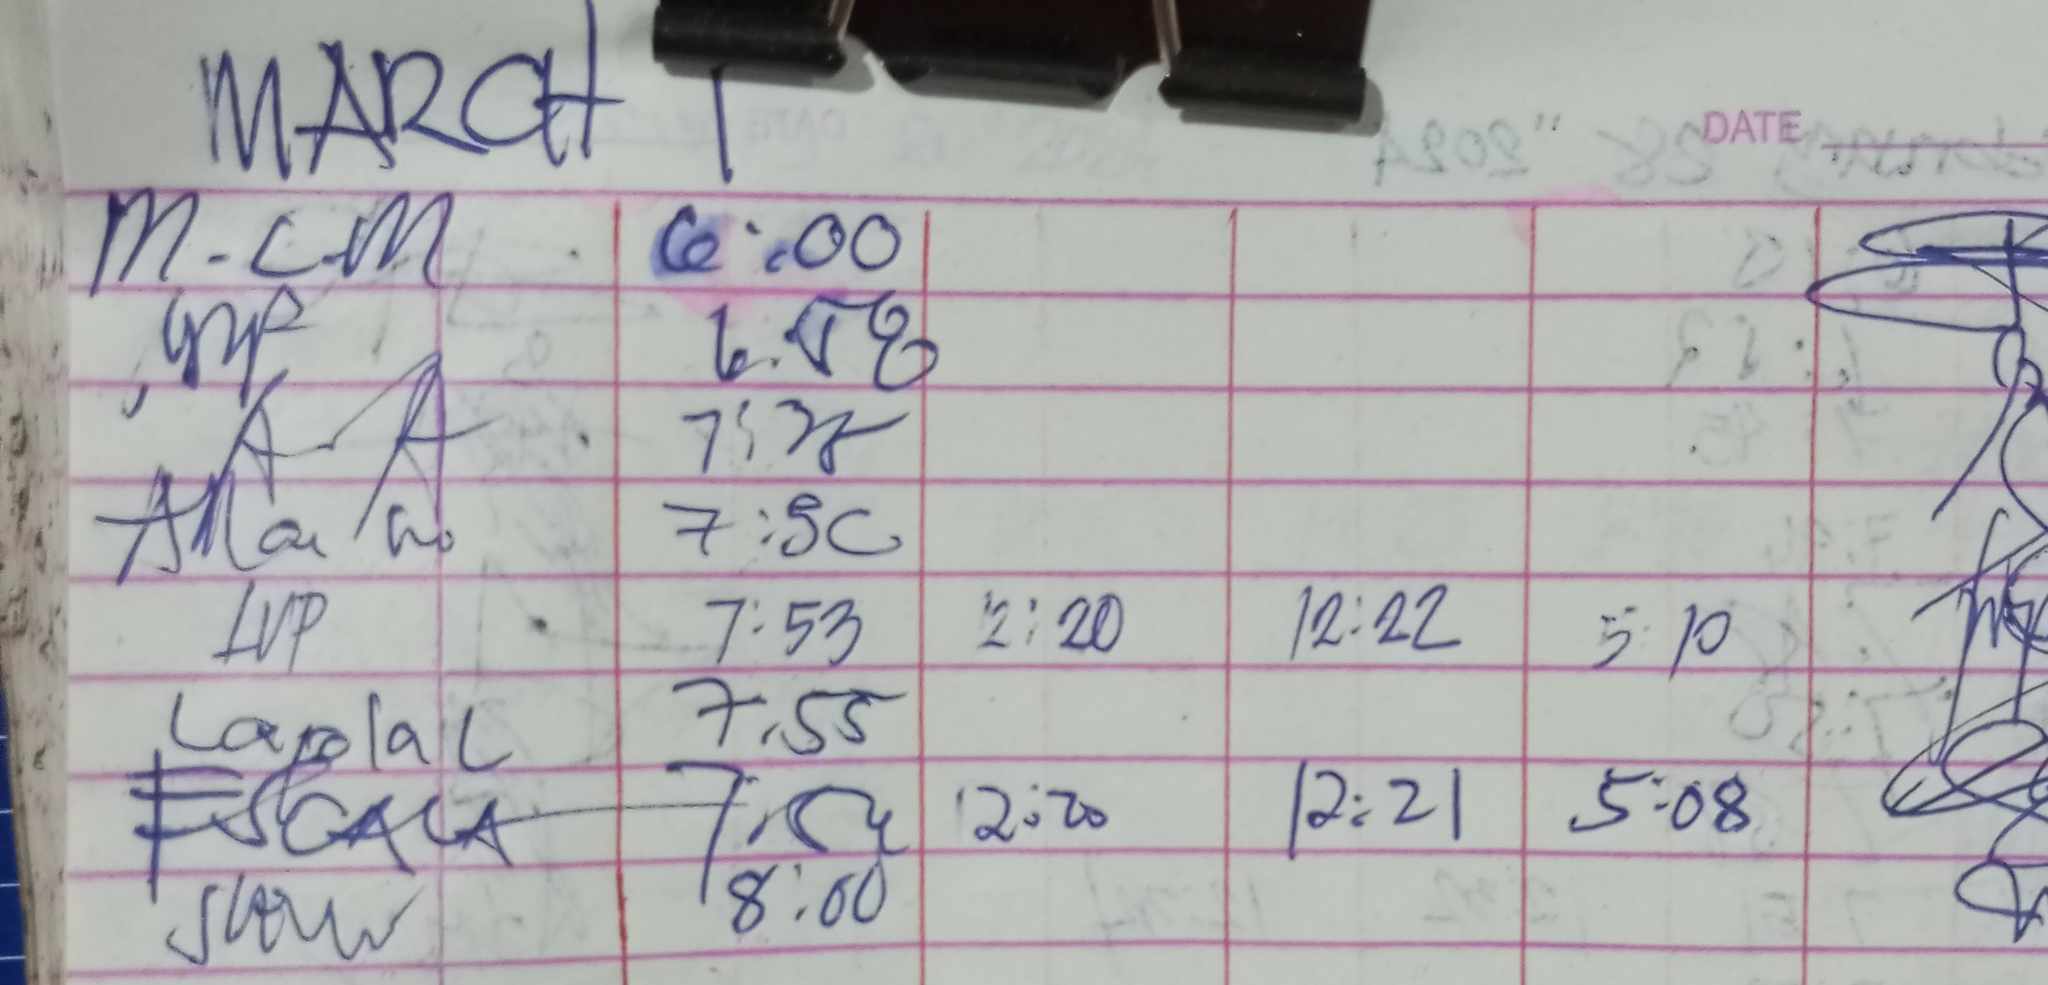 MARCH 1
DATE
M.C.M 6:00
6:58
A-A 7:35
7:50
LVP 7:53 12:20 12:22 5:10
Lapla L 7:55
ESCALA 7:54 12:20 12:21 5:08
8:00